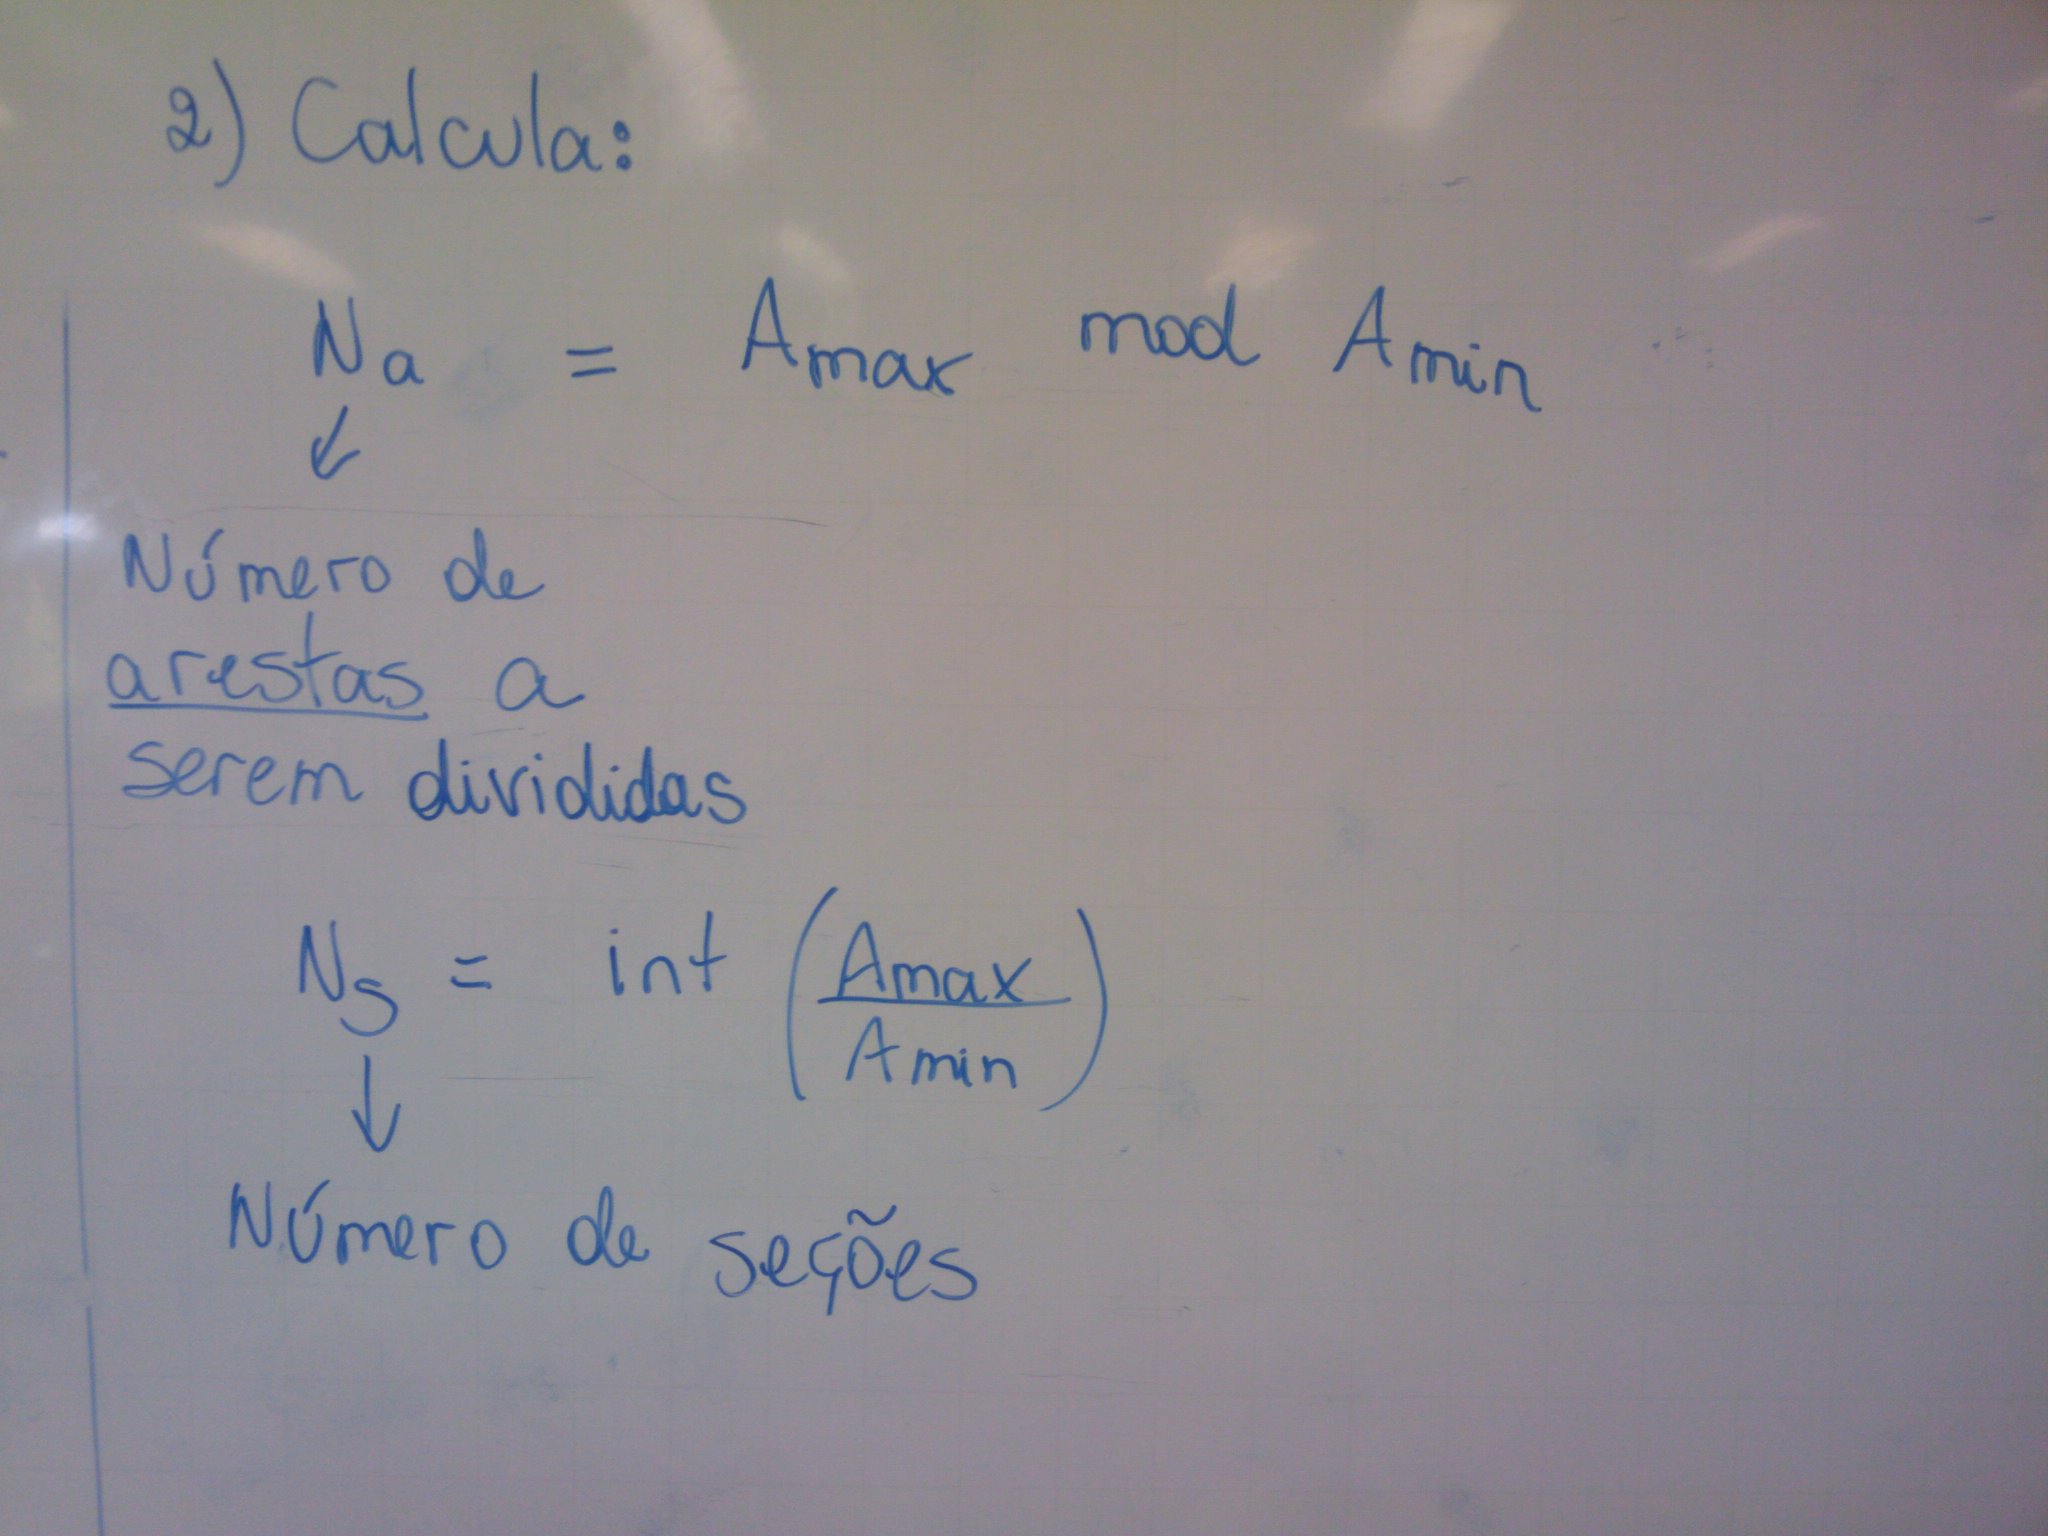 2) Calcula:
Na = Amax mod Amin
↓
Número de
arestas a
serem divididas
Ns = int (Amax / Amin)
↓
Número de seções